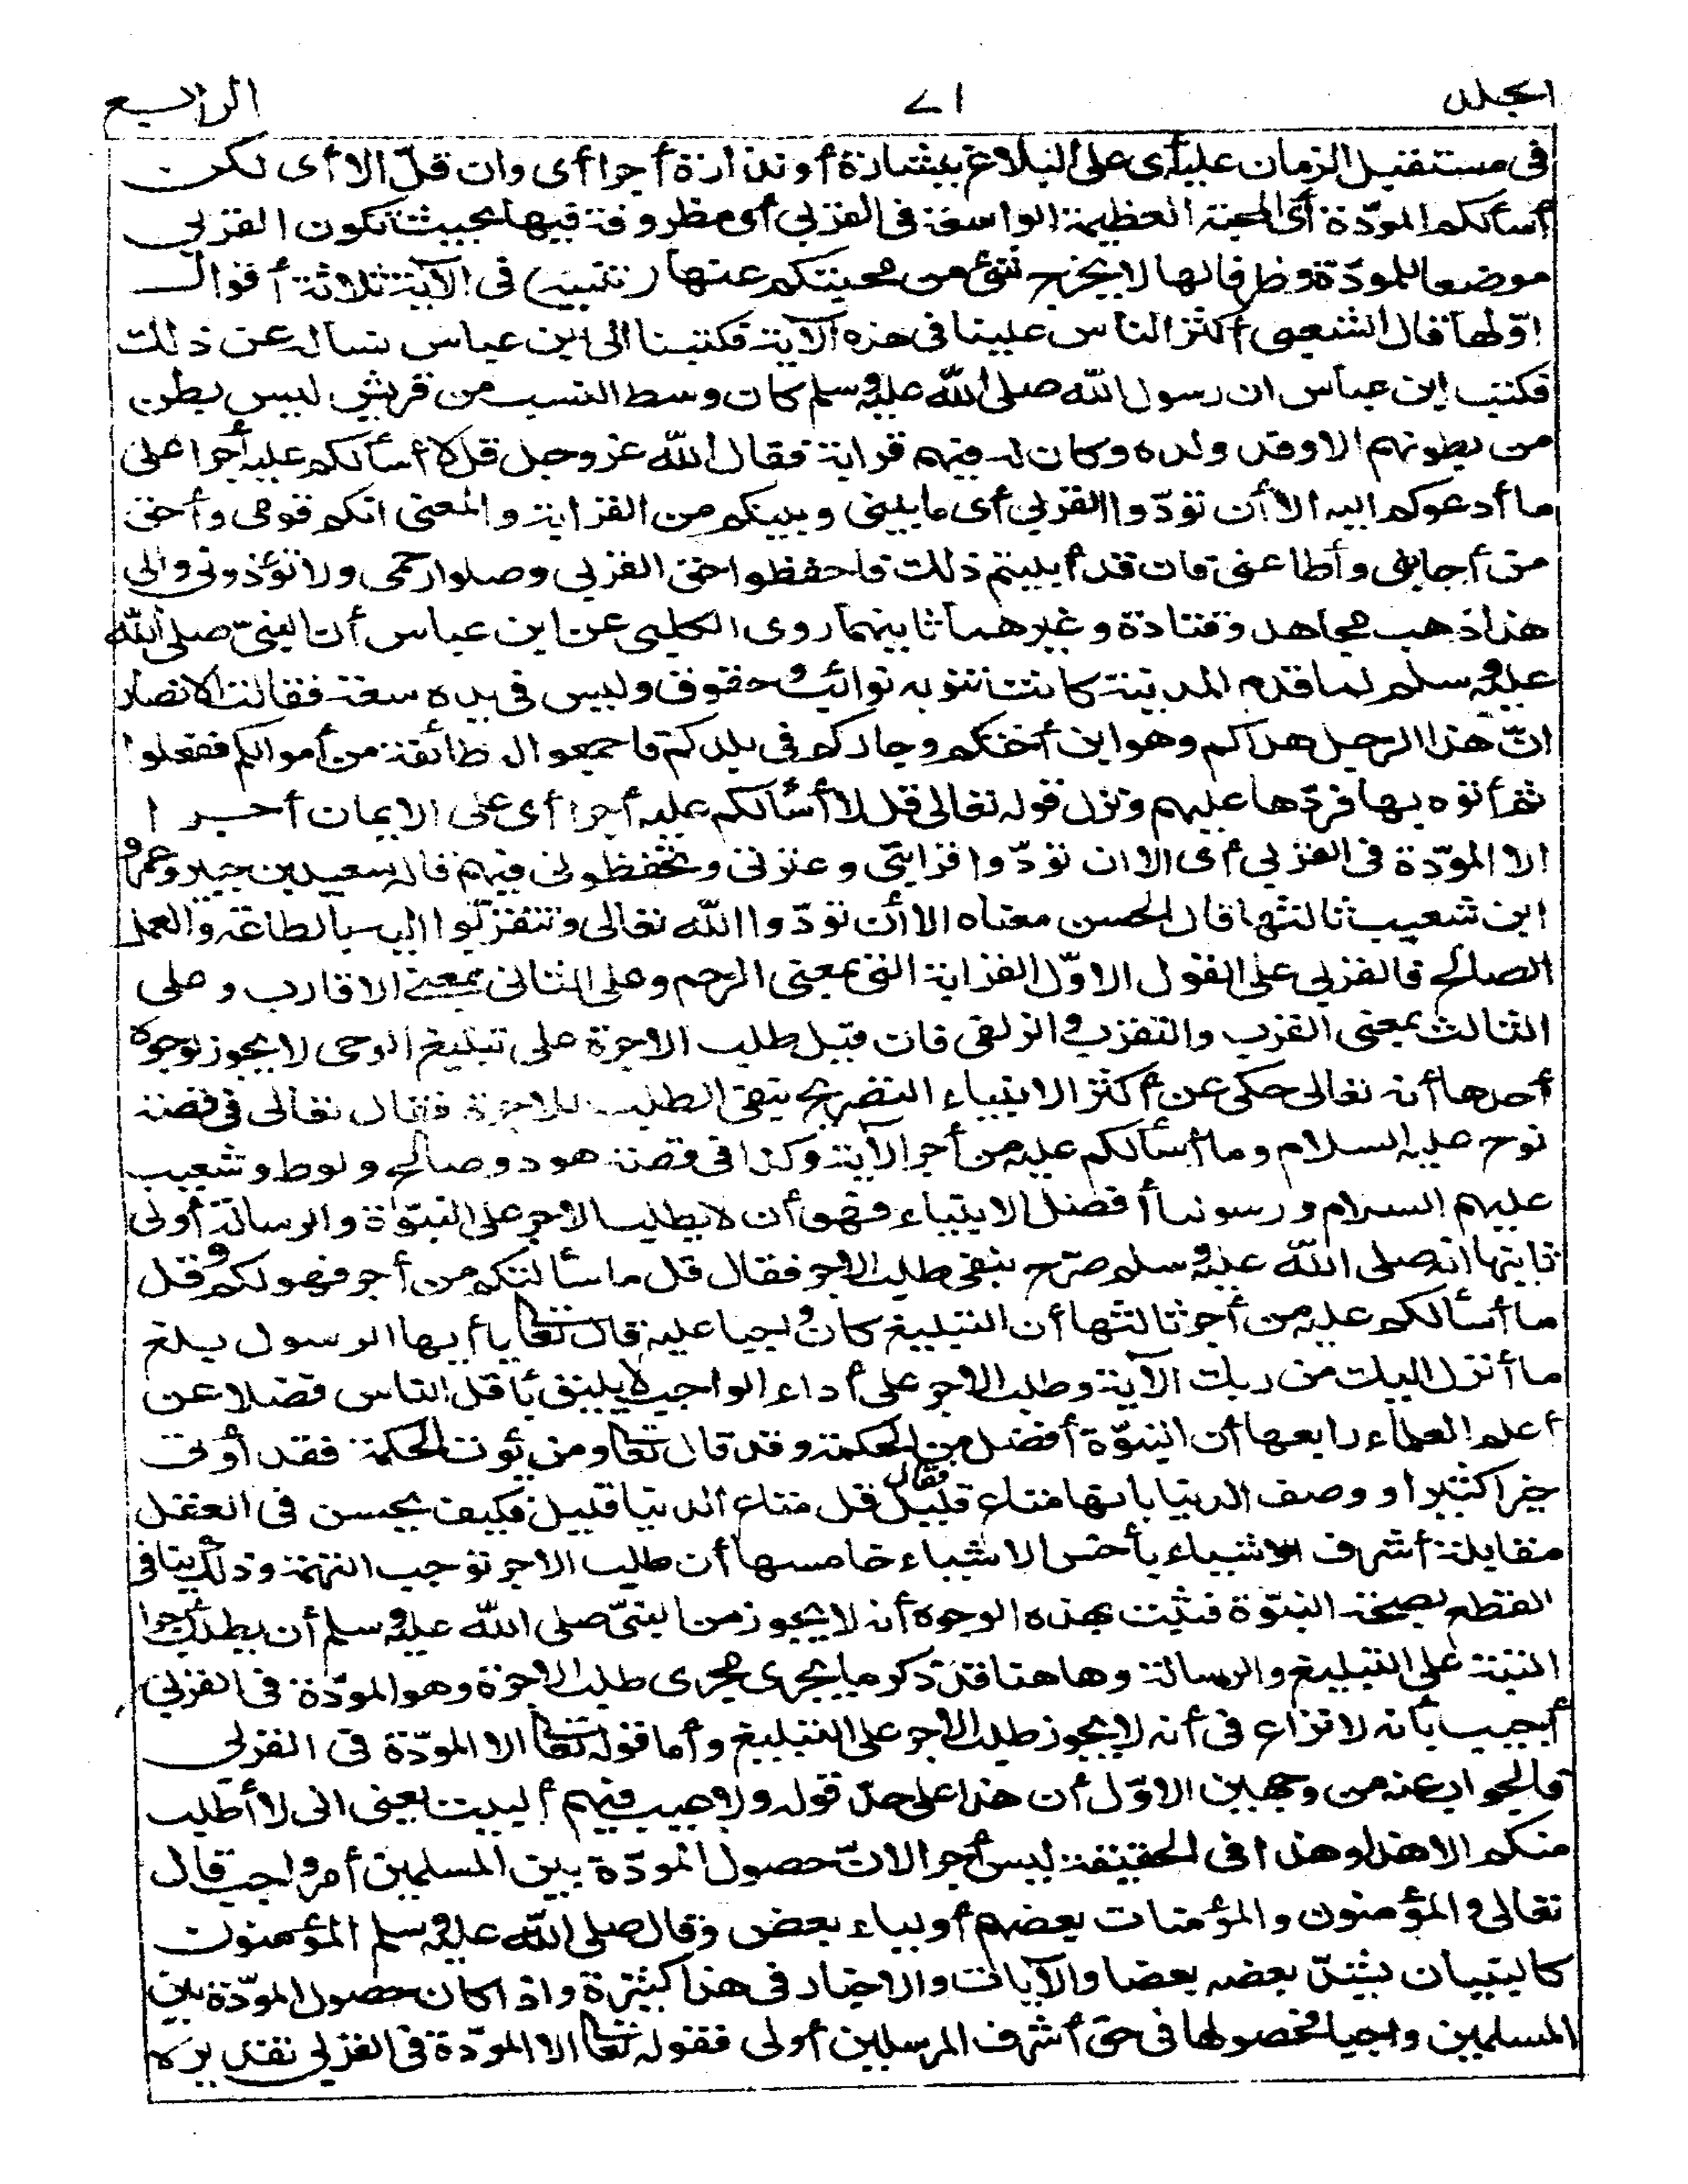 المجلد ٧١ الرابع
فى مستقبل الزمان عليه أى على البلاغ ببشارة أو نذارة أجرا أى وان قل الا أى لكن
أسألكم المودّة أى المحبة العظيمة الواسعة فى القربى أى مظروفة فيها بحيث تكون القربى
موضعا للمودّة وظرفا لها لا يخرج شئ من محبتكم عنها (تنبيه) فى الآية ثلاثة أقوال
اوّلها قال الشعبى أكثر الناس علينا فى هذه الآية فكتبنا الى ابن عباس نسأله عن ذلك
فكتب ابن عباس ان رسول الله صلى الله عليه وسلم كان وسط النسب من قريش ليس بطن
من بطونهم الا وقد ولده وكان له فيهم قرابة فقال الله عز وجل قل لا أسألكم عليه أجرا على
ما أدعوكم اليه الا أن تودّوا القربى أى ما بينى وبينكم من القرابة والمعنى انكم قومى وأحق
من أجابنى وأطاعنى فان قد أبيتم ذلك فاحفظوا حق القربى وصلوا رحمى ولا تؤذونى والى
هذا ذهب مجاهد وقتادة وغيرهما ثانيهما روى الكلبى عن ابن عباس أن النبىّ صلى الله
عليه وسلم لما قدم المدينة كانت تنوبه نوائب وحقوق وليس فى يده سعة فقالت الانصار
انّ هذا الرجل هداكم وهو ابن أختكم وجاركم فى بلدكم فاجمعوا له طائفة من أموالكم ففعلوا
ثم أتوه بها فردّها عليهم ونزل قوله تعالى قل لا أسألكم عليه أجرا أى على الايمان أجرا
الا المودّة فى القربى أى الا ان تودّوا قرابتى وعترتى وتحفظونى فيهم قاله سعيد بن جبير وعمرو
ابن شعيب ثالثها قال الحسن معناه الا أن تودّوا الله تعالى وتتقرّبوا اليه بالطاعة والعمل
الصالح فالقربى على القول الاوّل القرابة التى بمعنى الرحم وعلى الثانى بمعنى الاقارب وعلى
الثالث بمعنى القرب والتقرب والزلفى فان قيل طلب الاجرة على تبليغ الوحى لا يجوز لوجوه
أحدها أنه تعالى حكى عن أكثر الانبياء التصريح بنفى الطلب للاجرة فقال تعالى فى قصة
نوح عليه السلام وما أسألكم عليه من أجر الآية وكذا فى قصة هود وصالح ولوط وشعيب
عليهم السلام ورسولنا أفضل الانبياء فهو أن لا يطلب الاجر على النبوّة والرسالة أولى
ثانيها انه صلى الله عليه وسلم صرّح بنفى طلب الاجر فقال قل ما سألتكم من أجر فهو لكم وقل
ما أسألكم عليه من أجر ثالثها أن التبليغ كان واجبا عليه قال تعالى يا أيها الرسول بلغ
ما أنزل اليك من ربك الآية وطلب الاجر على أداء الواجب لا يليق بأقل الناس فضلا عن
أعلم العلماء رابعها أن النبوّة أفضل من الحكمة وقد قال تعالى ومن يؤت الحكمة فقد أوتى
خيرا كثيرا ووصف الدنيا بانها متاع قليل فقال قل متاع الدنيا قليل فكيف يحسن فى العقل
مقابلة أشرف الاشياء بأخس الاشياء خامسها أن طلب الاجر توجب التهمة وذلك ينافى
القطع بصحة النبوّة فثبت بهذه الوجوه أنه لا يجوز من النبىّ صلى الله عليه وسلم أن يطلب أجرا
البتة على التبليغ والرسالة وهاهنا قد ذكر ما يجرى مجرى طلب الاجرة وهو المودّة فى القربى
أجيب بأنه لا نزاع فى أنه لا يجوز طلب الاجر على التبليغ وأما قوله تعالى الا المودّة فى القربى
فالجواب عنه من وجهين الاوّل أن هذا على حدّ قوله ولا عيب فيهم البيت يعنى انى لا أطلب
منكم الا هذا وهذا فى الحقيقة ليس أجرا لانّ حصول المودّة بين المسلمين أمر واجب قال
تعالى والمؤمنون والمؤمنات بعضهم أولياء بعض وقال صلى الله عليه وسلم المؤمنون
كالبنيان يشدّ بعضه بعضا والآيات والاخبار فى هذا كثيرة واذا كان حصول المودّة بين
المسلمين واجبا فحصولها فى حق أشرف المرسلين أولى فقوله تعالى الا المودّة فى القربى تقديره